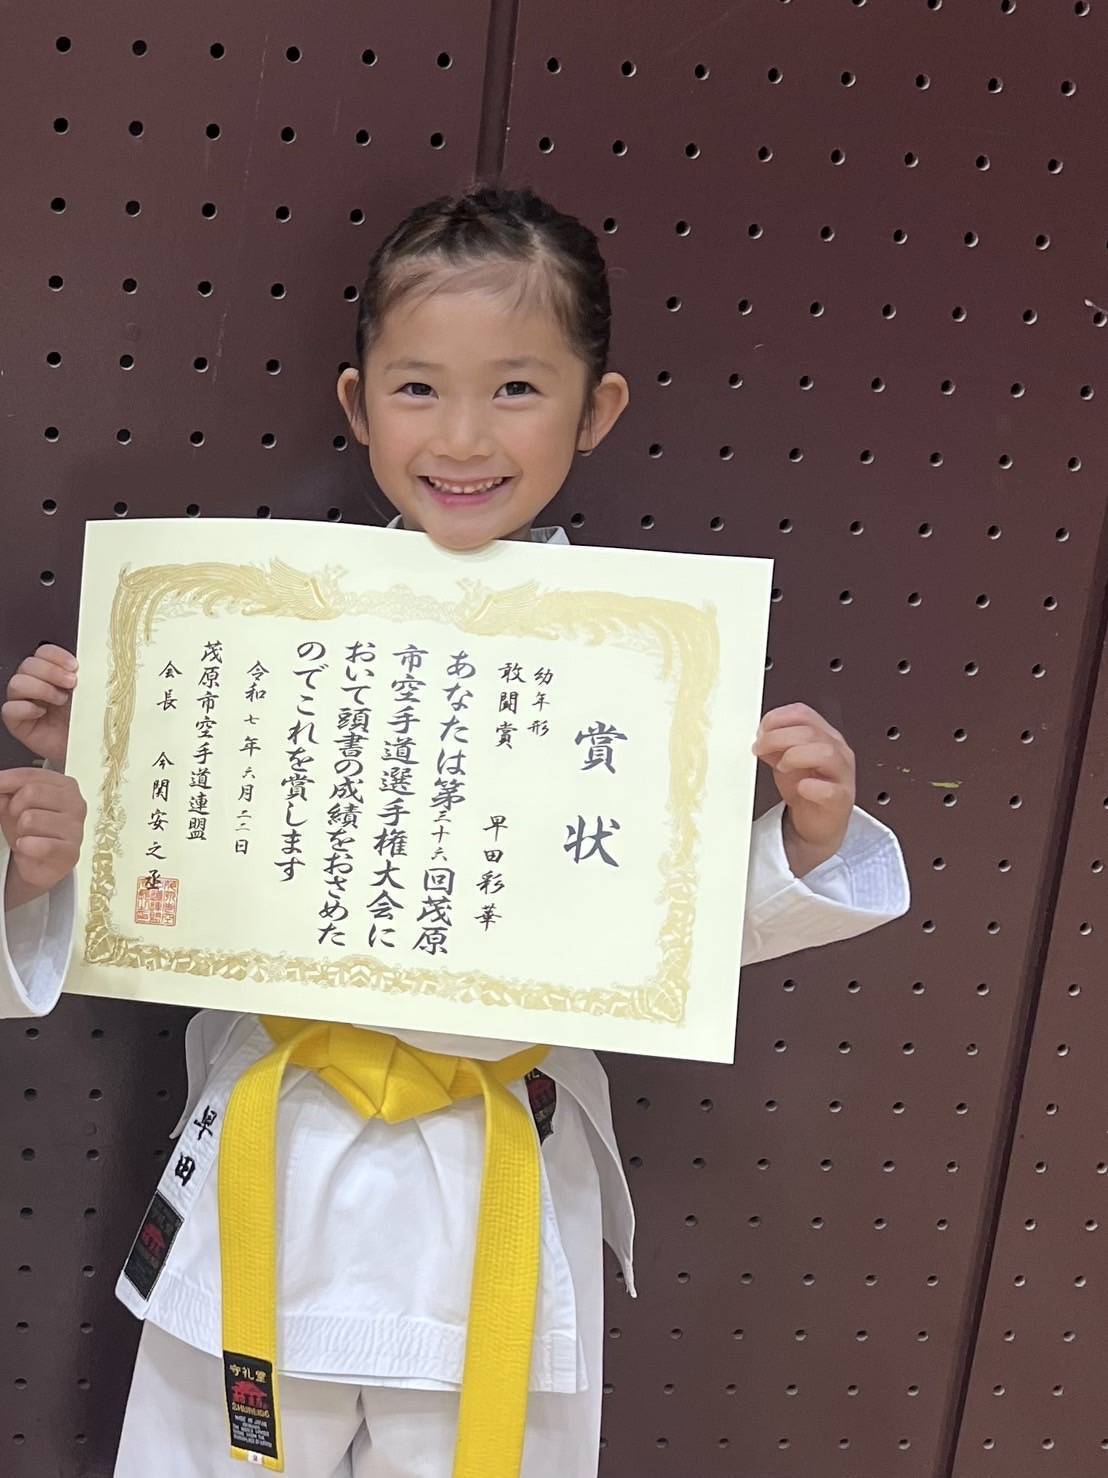 賞状
幼年形
敢闘賞
早田彩華
あなたは第三十六回茂原
市空手道選手権大会に
おいて頭書の成績をおさめた
のでこれを賞します
令和七年六月二二日
茂原市空手道連盟
会長 今関安之丞
早田
守礼堂
SHUREIDO
MADE IN JAPAN